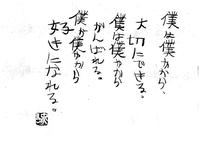 僕は僕だから、
大切にできる。
僕は僕だから
がんばれる。
僕が僕だから
好きになれる。